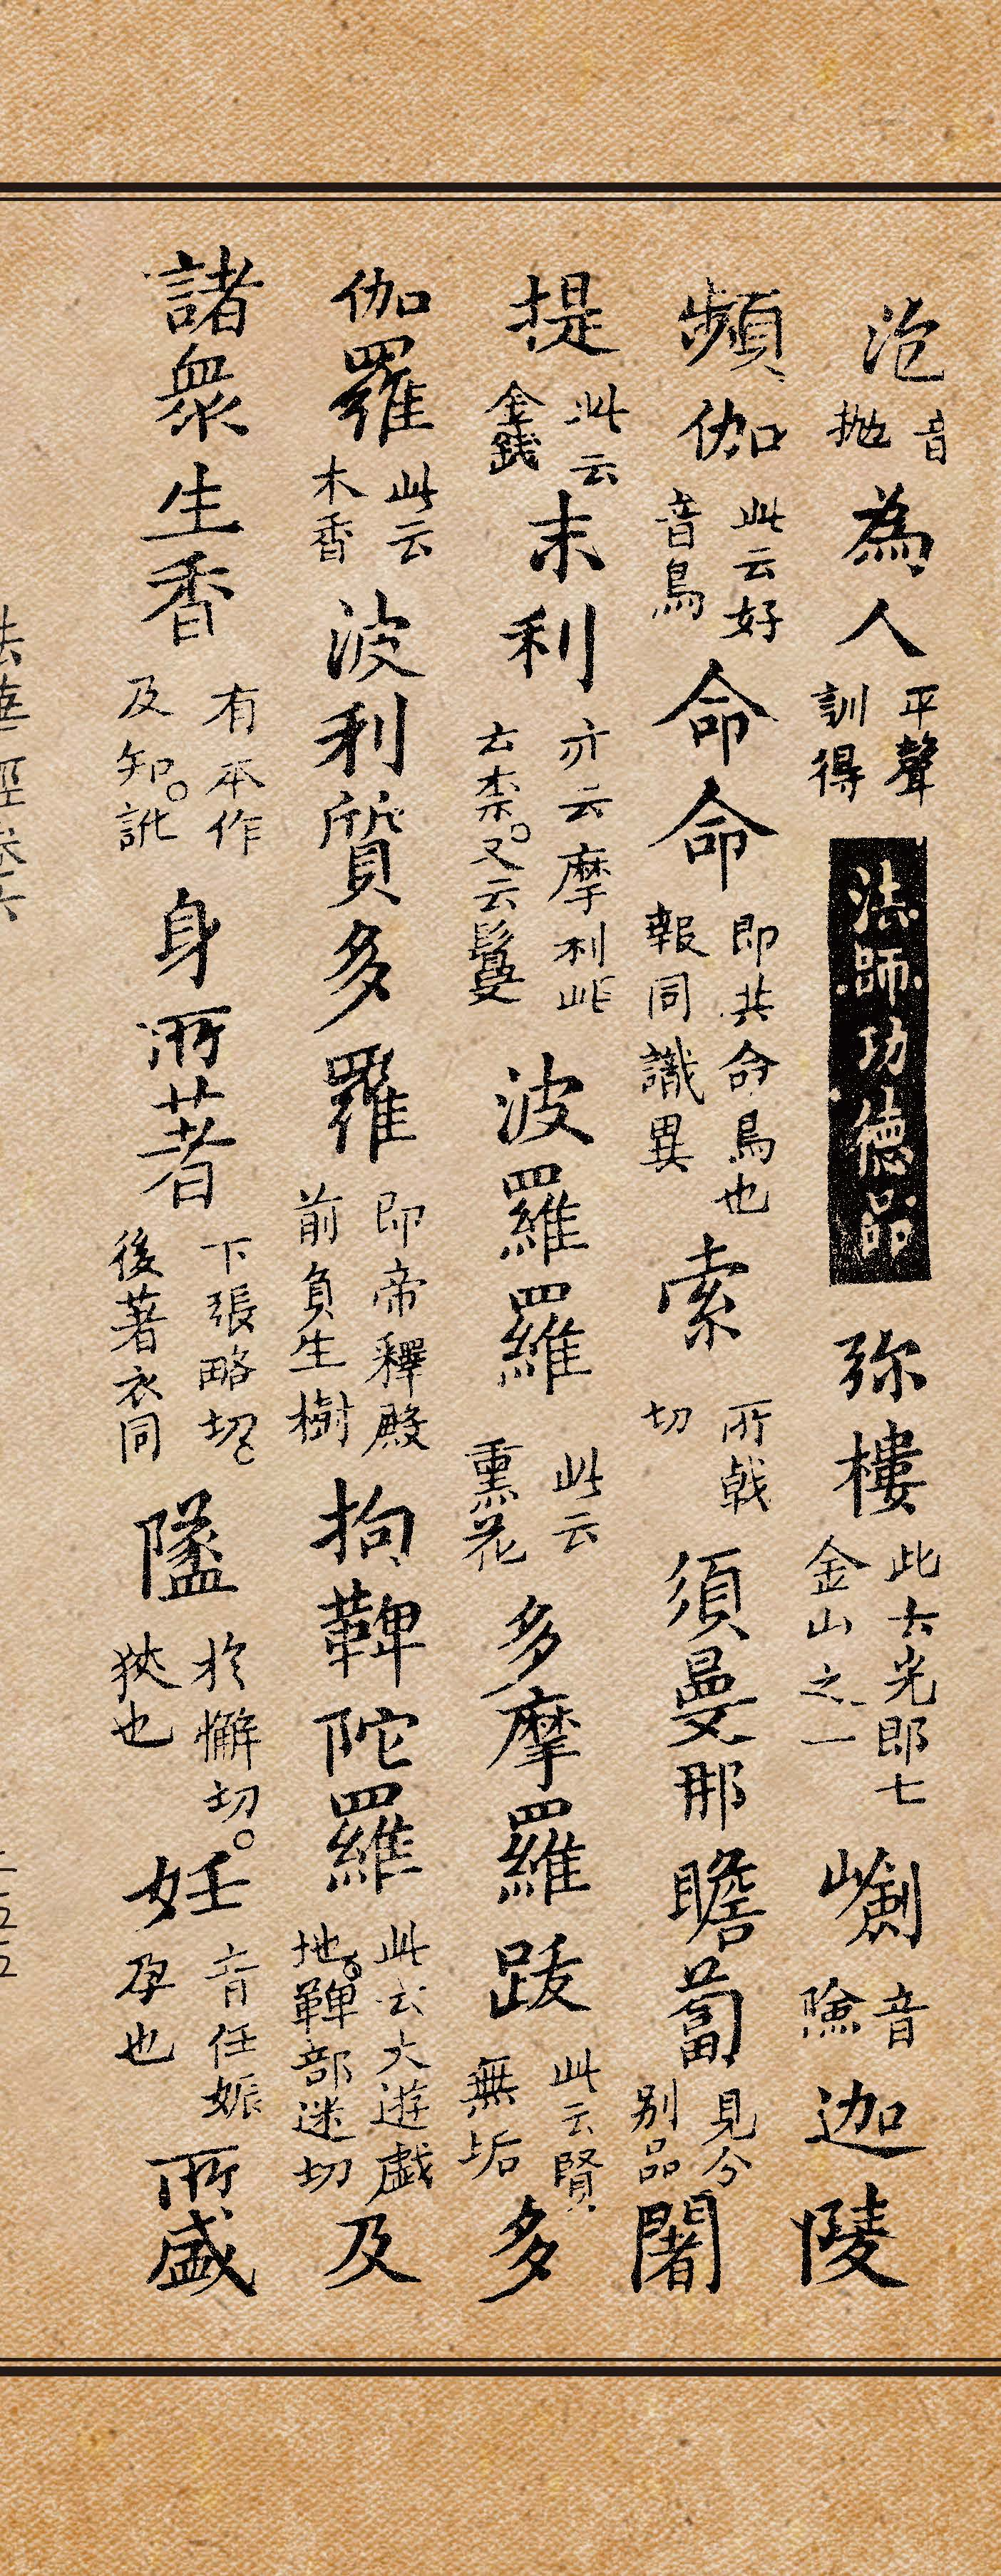 疱音抛為人平聲訓得法師功德品弥樓此云光即七金山之一㠝音險迦陵
頻伽此云好音鳥命命即共命鳥也報同識異索所戟切須曼那瞻蔔見分别品闍
提此云金錢末利亦云摩利此云柰又云鬘波羅羅此云熏花多摩羅跋此云賢無垢多
伽羅此云木香波利質多羅即帝釋殿前負生樹拘鞞陀羅此云大遊戲地鞞部迷切及
諸衆生香有本作及知訛身所著下張略切後著衣同隘於懈切狹也妊音任娠孕也所盛
法華經卷六